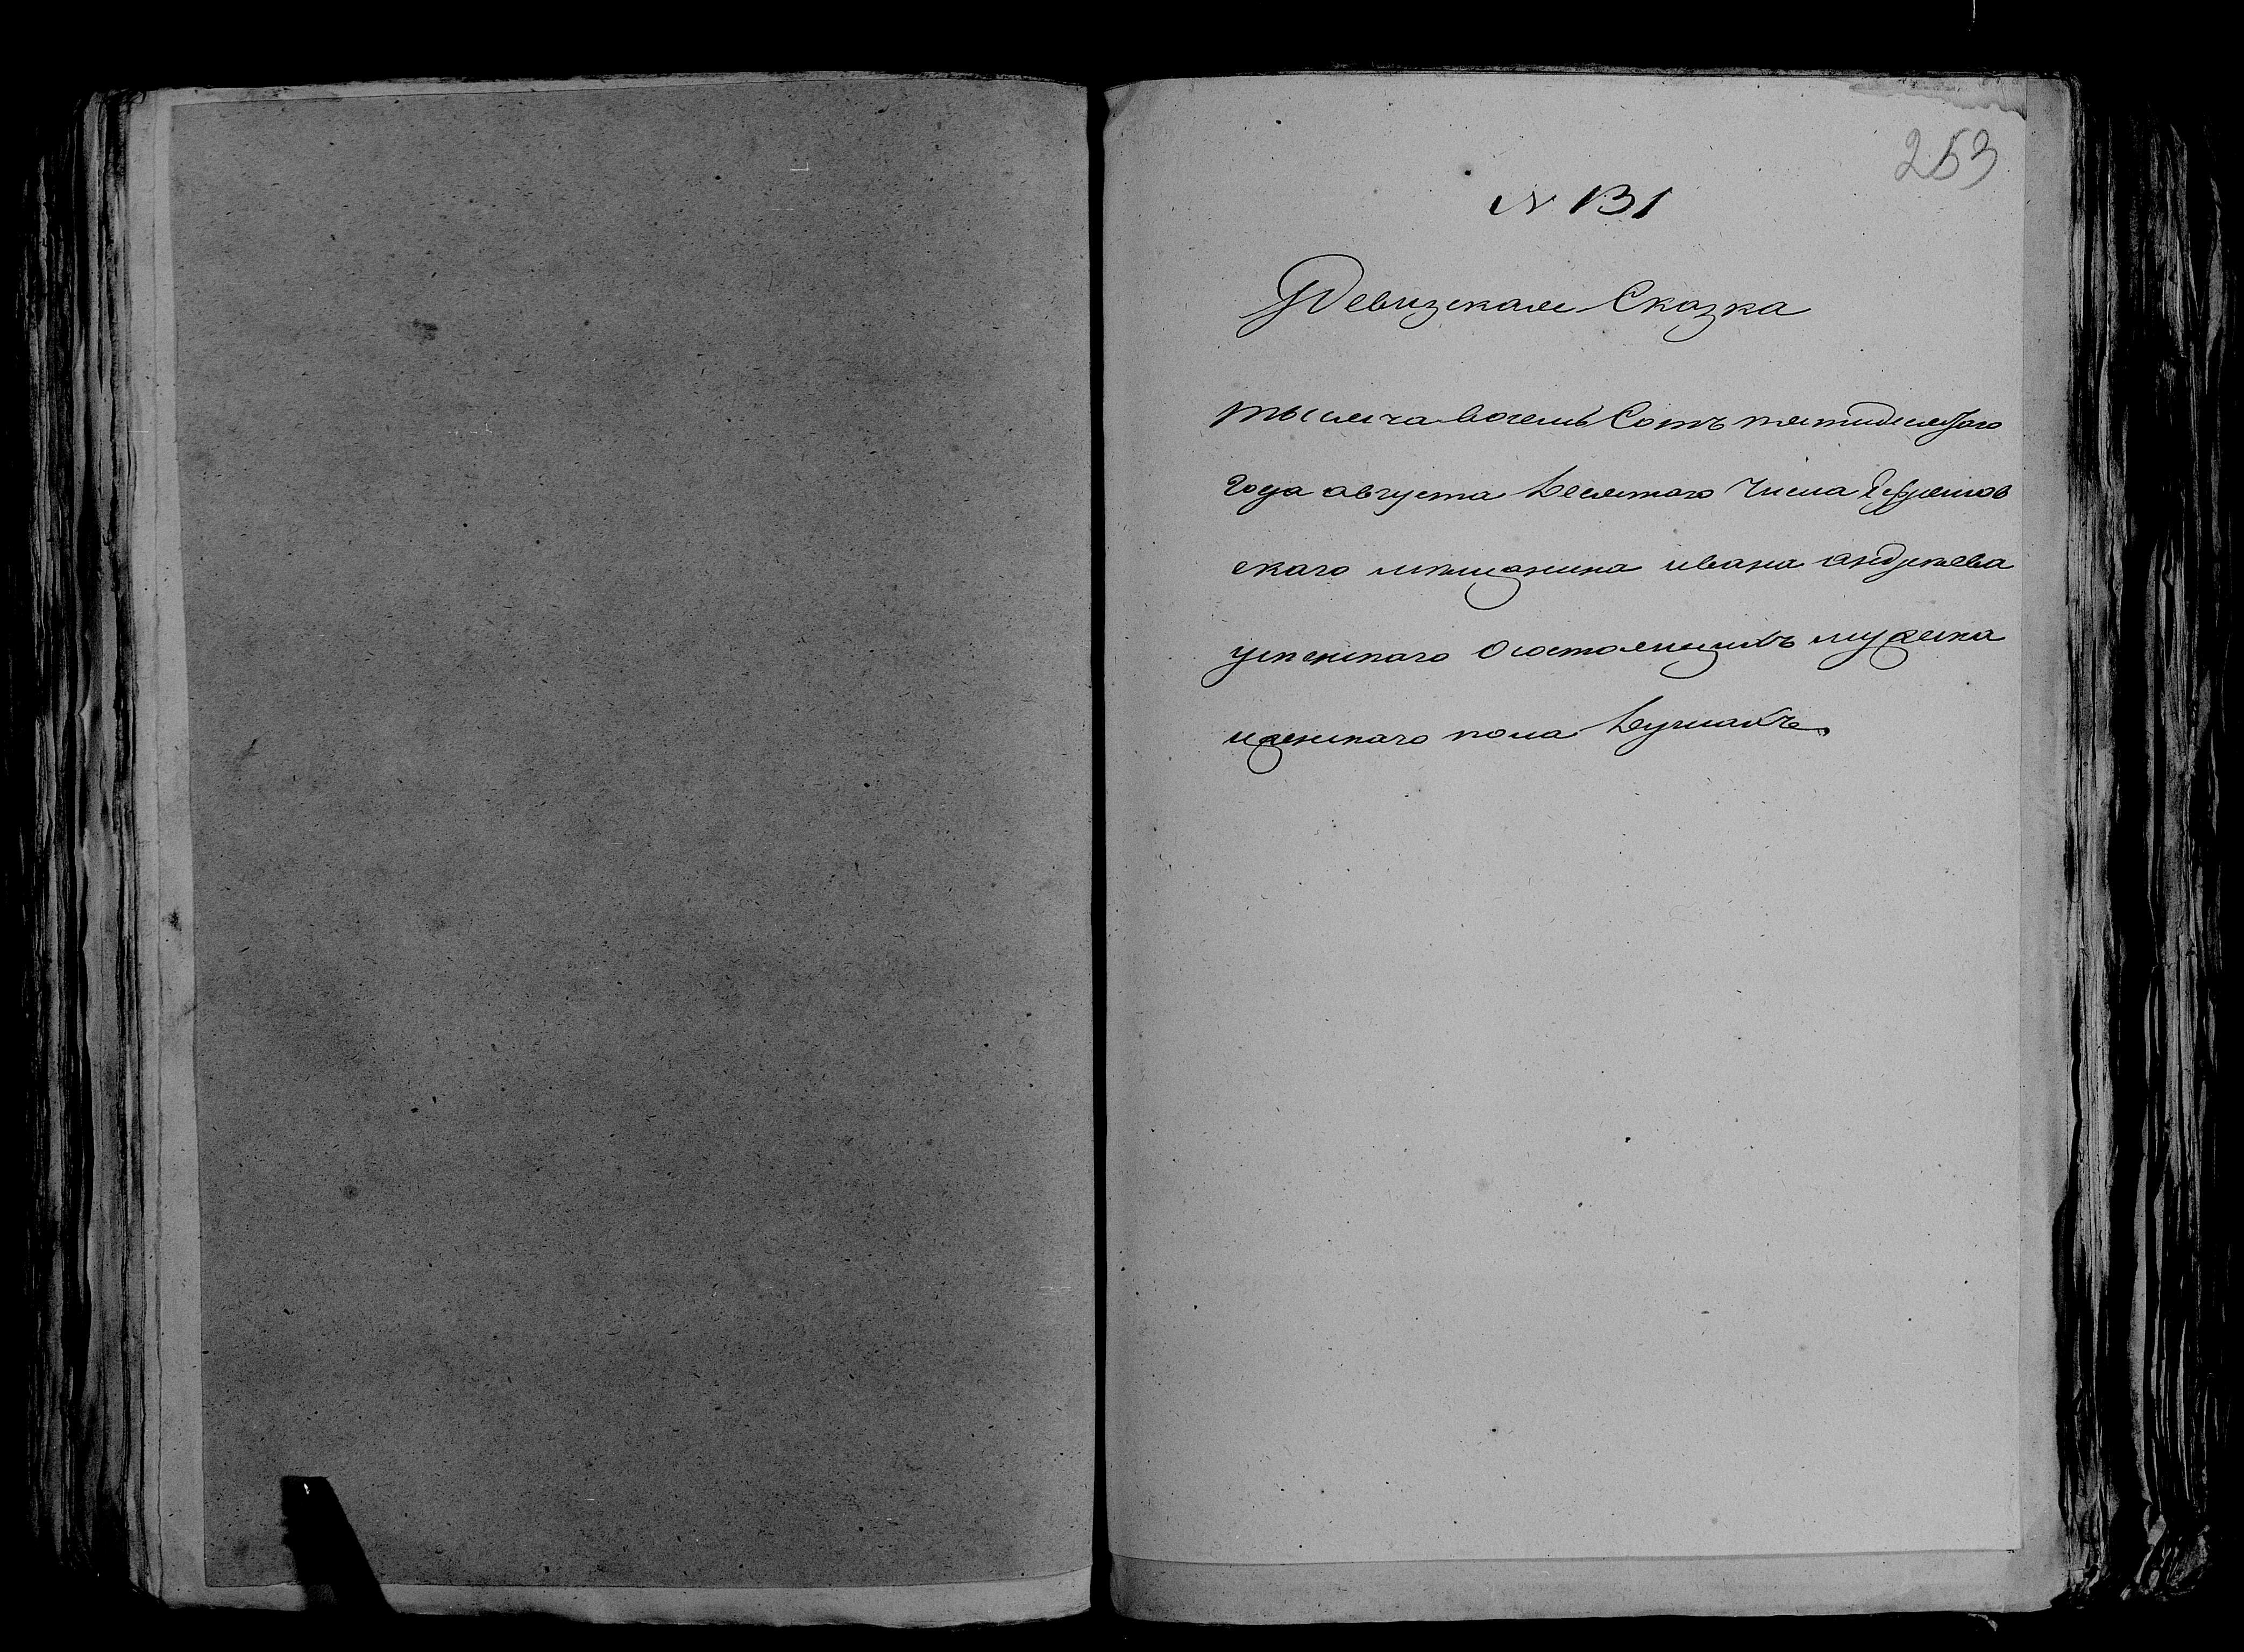 253
N 131
Ревизская Сказка
тысяча восемь Сотъ пятидесятаго
Года августа десятаго Числа Ефремов
скаго мещанина ивана андреева
успенскаго Осостоящихъ мужска
иженскаго пола душахъ.